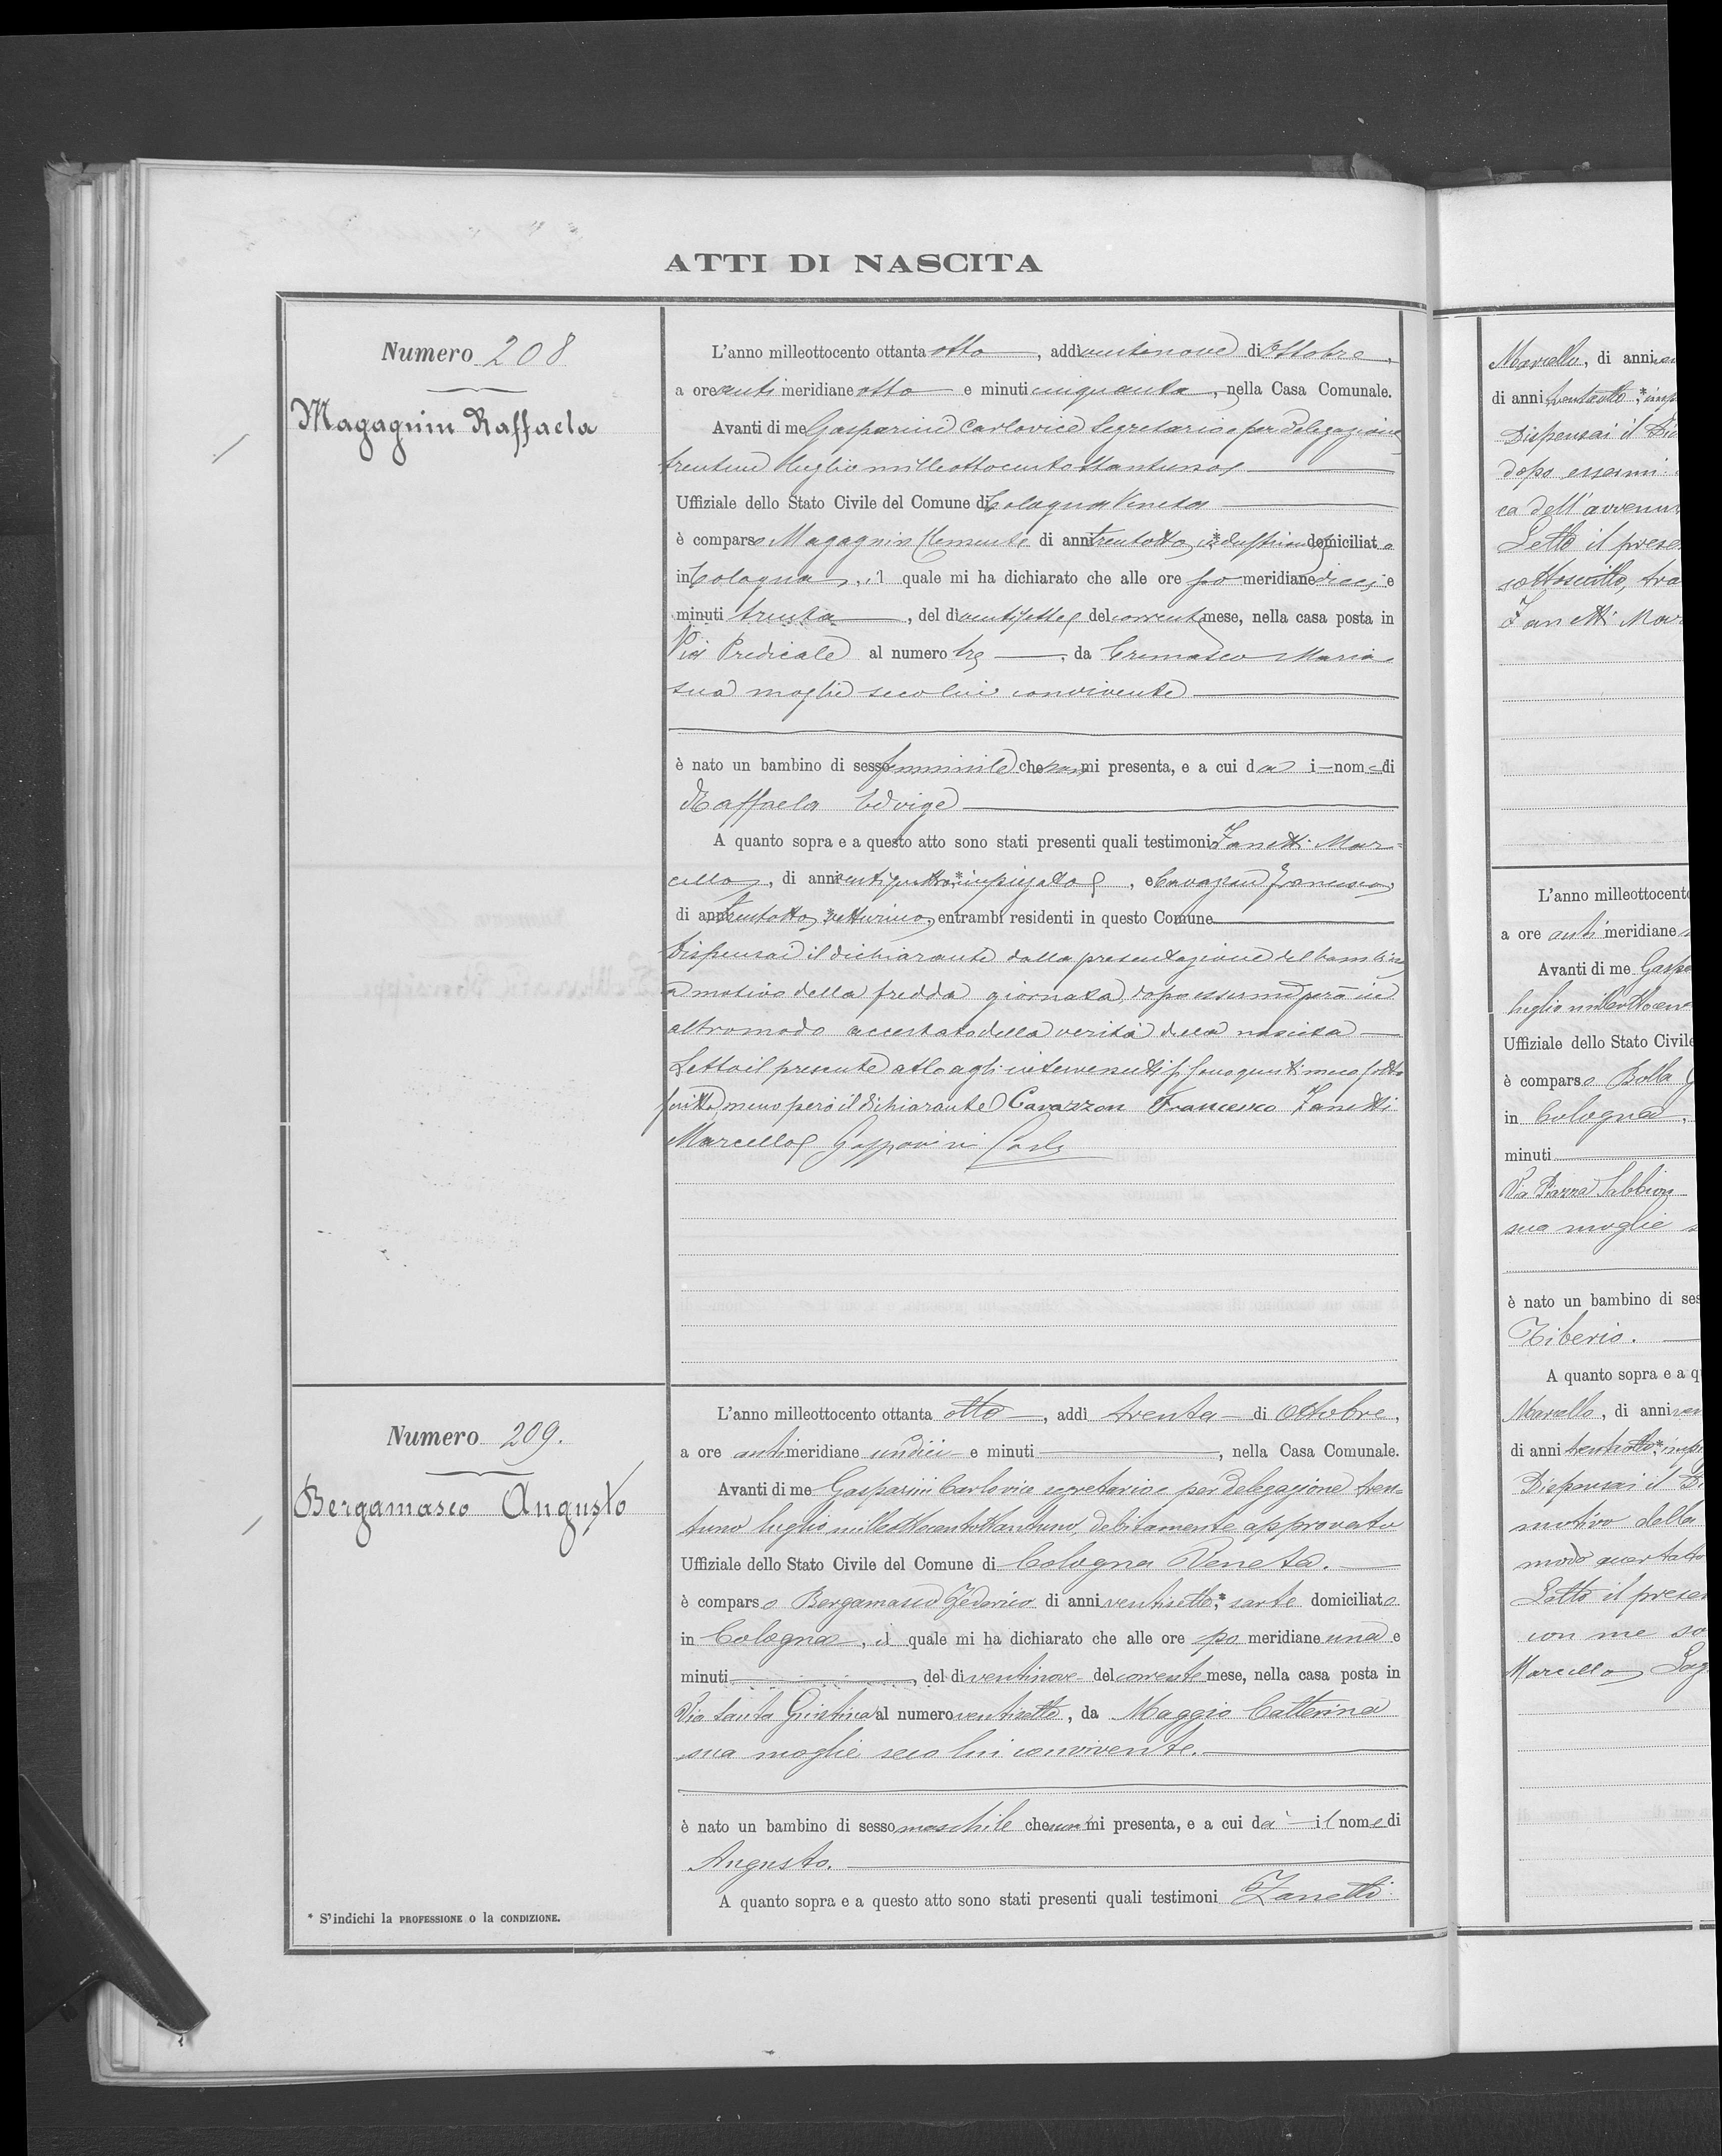 ATTI DI NASCITA
Numero 208
Magagnin Raffaela
L'anno milleottocento ottanta otto, addì ventinove di Ottobre,
a ore anti meridiane otto e minuti cinquanta, nella Casa Comunale.
Avanti di me Gasparini Carlo vice Segretario e per delegazione
trentuno luglio milleottocentottantuno
Uffiziale dello Stato Civile del Comune di Cologna Veneta
è comparso Magagnin Clemente di anni trentotto, * domiciliato
in Cologna, il quale mi ha dichiarato che alle ore po meridiane dieci e
minuti trenta, del dì ventisette del corrente mese, nella casa posta in
Via Predicale al numero tre, da Cremasco Maria
sua moglie seco lui convivente
è nato un bambino di sesso femminile che non mi presenta, e a cui da i nome di
Raffaela Edvige
A quanto sopra e a questo atto sono stati presenti quali testimoni Zanetti Mar=
cello, di anni * impiegato, e Cavazzon Francesco,
di anni trentotto, * vetturino, entrambi residenti in questo Comune
Dispensai il dichiarante dalla presentazione del bambino
a motivo della fredda giornata, dopo essermi però in
altro modo accertato della verità della nascita
Letto il presente atto agli intervenuti si sono questi meco sotto
scritti, meno però il dichiarante Cavazzon Francesco Zanetti
Marcello Gasparini Carlo
Numero 209.
Bergamasco Augusto
L'anno milleottocento ottanta otto, addì trenta di Ottobre,
a ore antimeridiane undici e minuti, nella Casa Comunale.
Avanti di me Gasparini Carlo vice segretario e per delegazione tren=
tuno luglio milleottocentottantuno, debitamente approvata
Uffiziale dello Stato Civile del Comune di Cologna Veneta.
è comparso Bergamasco Federico di anni ventisette, * sarte domiciliato
in Cologna, il quale mi ha dichiarato che alle ore po meridiane una e
minuti, del dì ventinove del corrente mese, nella casa posta in
Via Santa Giustina al numero ventisette, da Maggio Catterina
sua moglie seco lui convivente.
è nato un bambino di sesso maschile che non mi presenta, e a cui dà il nome di
Augusto.
A quanto sopra e a questo atto sono stati presenti quali testimoni Zanetti
* S'indichi la PROFESSIONE o la CONDIZIONE.
Marcello, di anni
di anni trentotto, *
Dispensai il
dopo essermi
ca dell'
Letto il
sottoscritto,
Zanetti Mar
L'anno milleottocento
a ore anti meridiane
Avanti di me Gaspa
luglio milleottocen
Uffiziale dello Stato Civile
è comparso Bolla
in Cologna,
minuti
Via Piazza Sabbion
sua moglie
è nato un bambino di ses
Tiberio.
A quanto sopra e a q
Marcello, di anni
di anni trentotto, *
Dispensai il
motivo della
modo
Letto il
con me so
Marcello